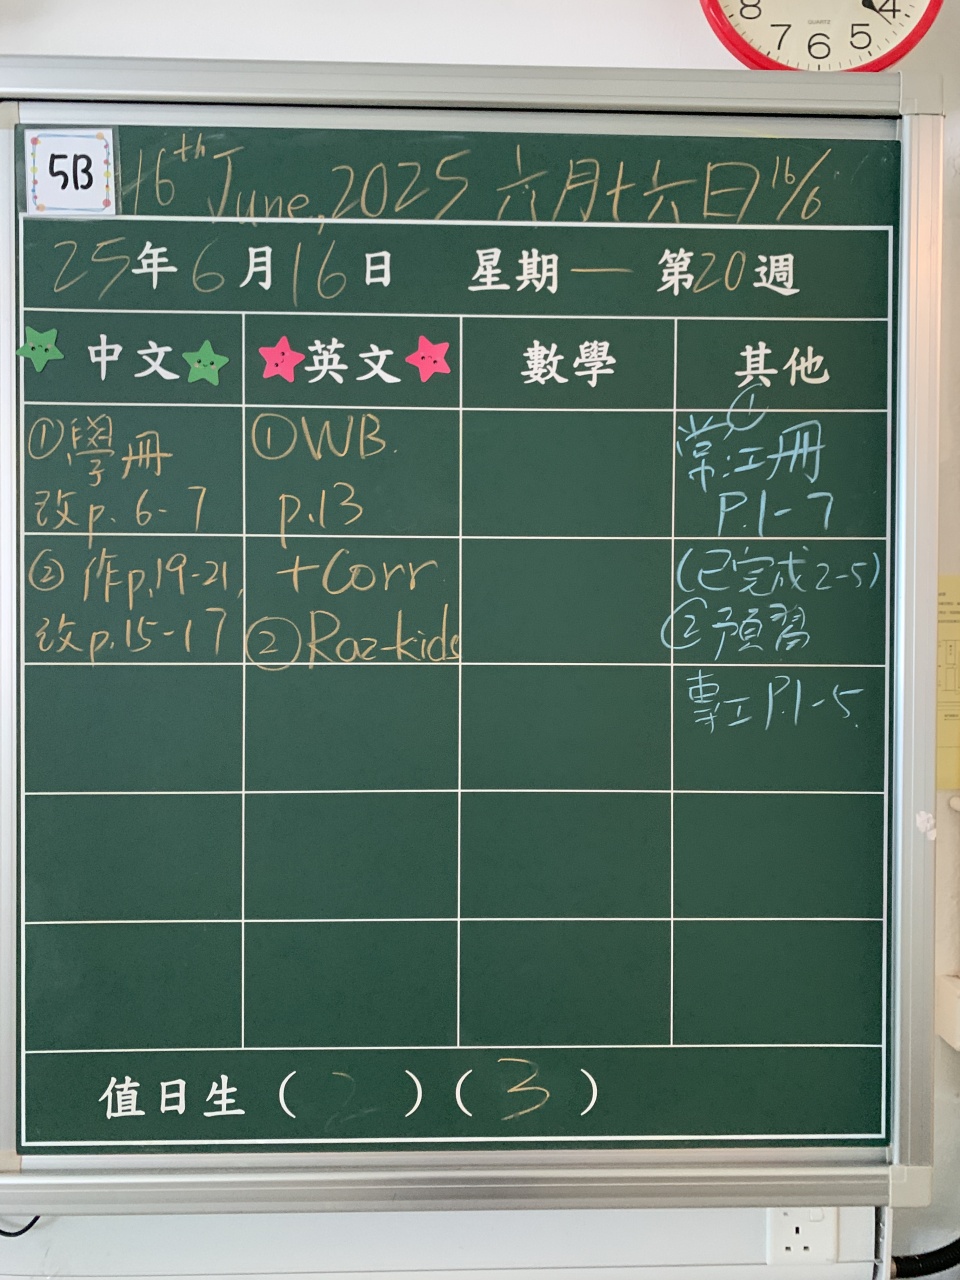 8 7 6 5 4
QUARTZ
5B 16th June, 2025 六月十六日 16/6
25年6月16日 星期一 第20週
中文 英文 數學 其他
①學冊
改p. 6-7
② 作p.19-21,
改p.15-17
①WB.
p.13
+Corr
②Raz-kids
①
常江冊
P.1-7
(已完成2-5)
②預習
專工 P.1-5.
值日生 ( 2 ) ( 3 )